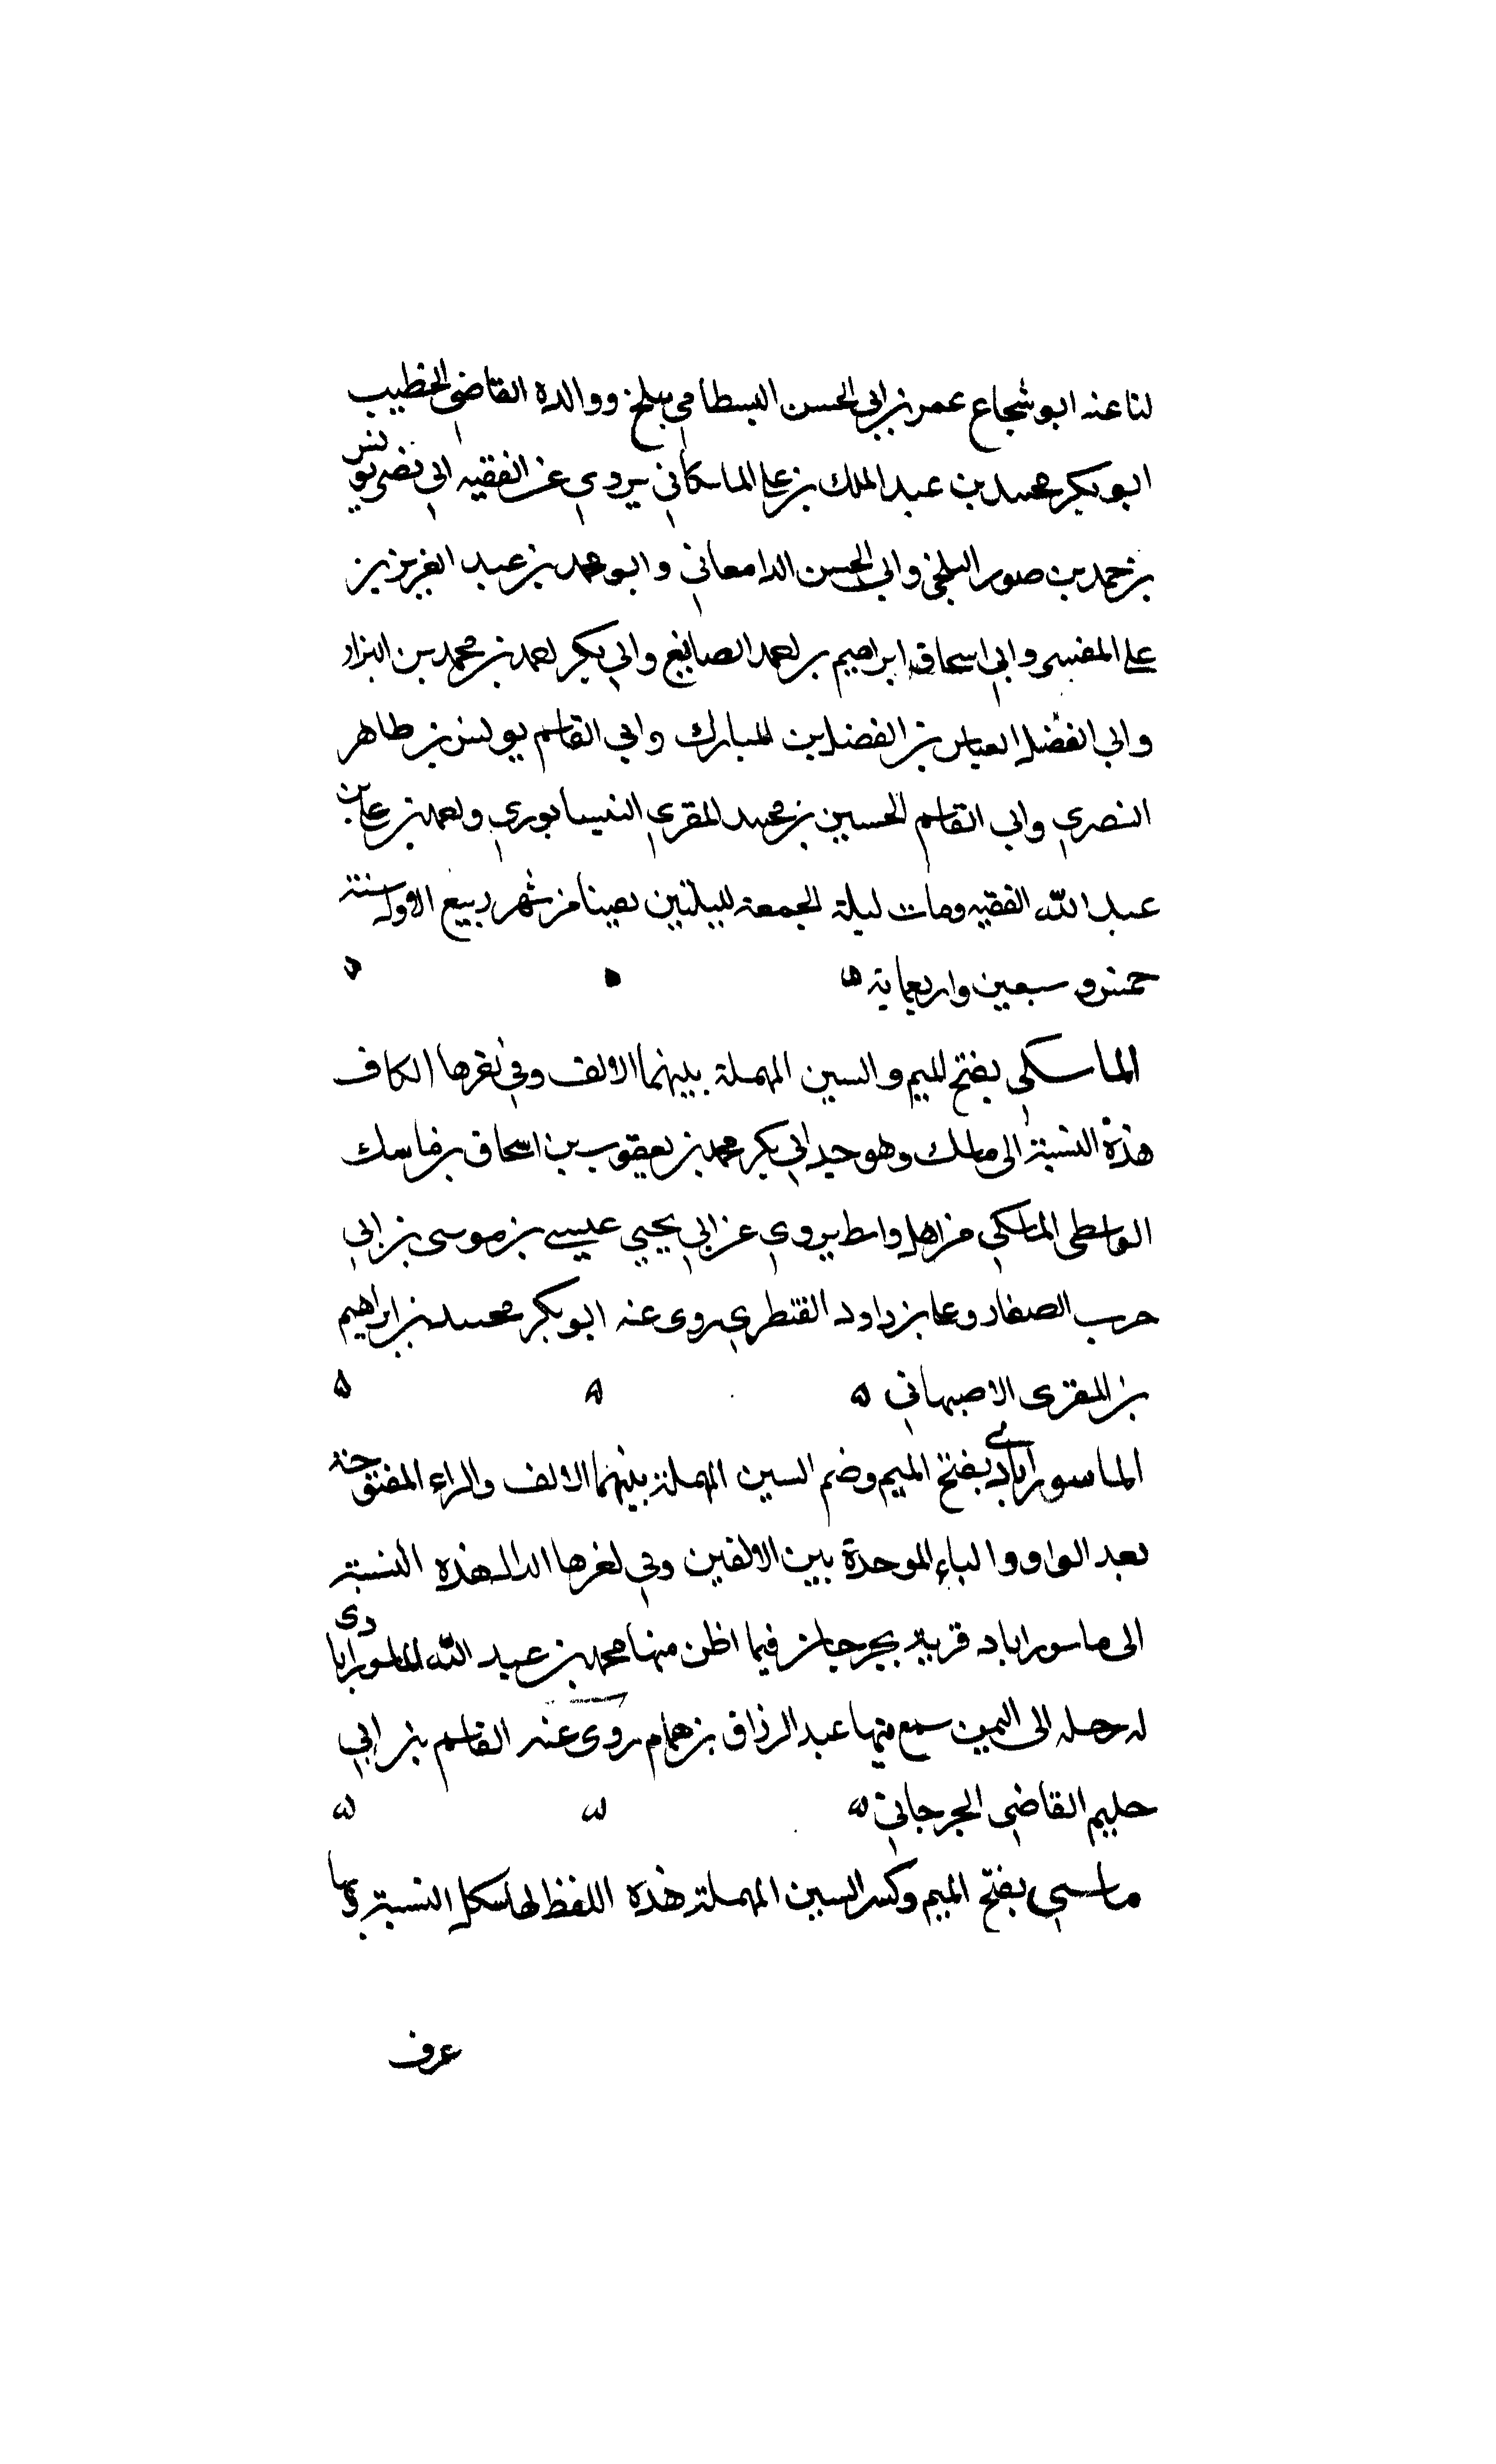 لنا عنه ابو شجاع عمر بن ابي الحسن البسطامي ببلخ ووالده القاضي الخطيب
ابو بكر محمد بن عبد الملك بن علي الماسكاني يروي عن الفقيه ابي نصر يونس
بن حمد بن صور البلخي وابي الحسن الدامغاني وابو محمد بن عبد العزيز بن
علي المفسر وابي اسحاق ابراهيم بن احمد الصايغ وابي بكر احمد بن محمد بن البزاز
وابي الفضل العباس بن الفضل بن المبارك وابي القاسم يونس بن طاهر
النصري وابي القاسم الحسين بن محمد المقري النيسابوري واحمد بن علي بن
عبد الله الفقيه ومات ليلة الجمعة لليلتين بقينا من شهر ربيع الاول سنة
خمس وسبعين واربعماية ه
الماسكي بفتح الميم والسين المهملة بينهما الالف وفي اخرها الكاف
هذه النسبة الى ماسك وهو جد ابي بكر محمد بن يعقوب بن اسحاق بن ماسك
الواسطي الماسكي من اهل واسط يروي عن ابي يحيي عيسى بن موسى بن ابي
حرب الصفار وعلي بن داود القنطري روى عنه ابو بكر محمد بن ابراهيم
بن المقري الاصبهاني ه ه ه
الماسورابادي بفتح الميم وضم السين المهملة بينهما الالف والراء المفتوحة
بعد الواو والباء الموحدة بين الالفين وفي اخرها الدال هذه النسبة
الى ماسوراباد قرية بجرجان فيما اظن منها محمد بن عبيد الله الماسورابادي
له رحلة الى اليمن سمع فيها عبد الرزاق بن همام روى عنه القاسم بن ابي
حليم القاضي الجرجاني ه ه ه
ماسي بفتح الميم وكسر السين المهملة هذه اللفظ لها شكل النسبة وبها
عرف